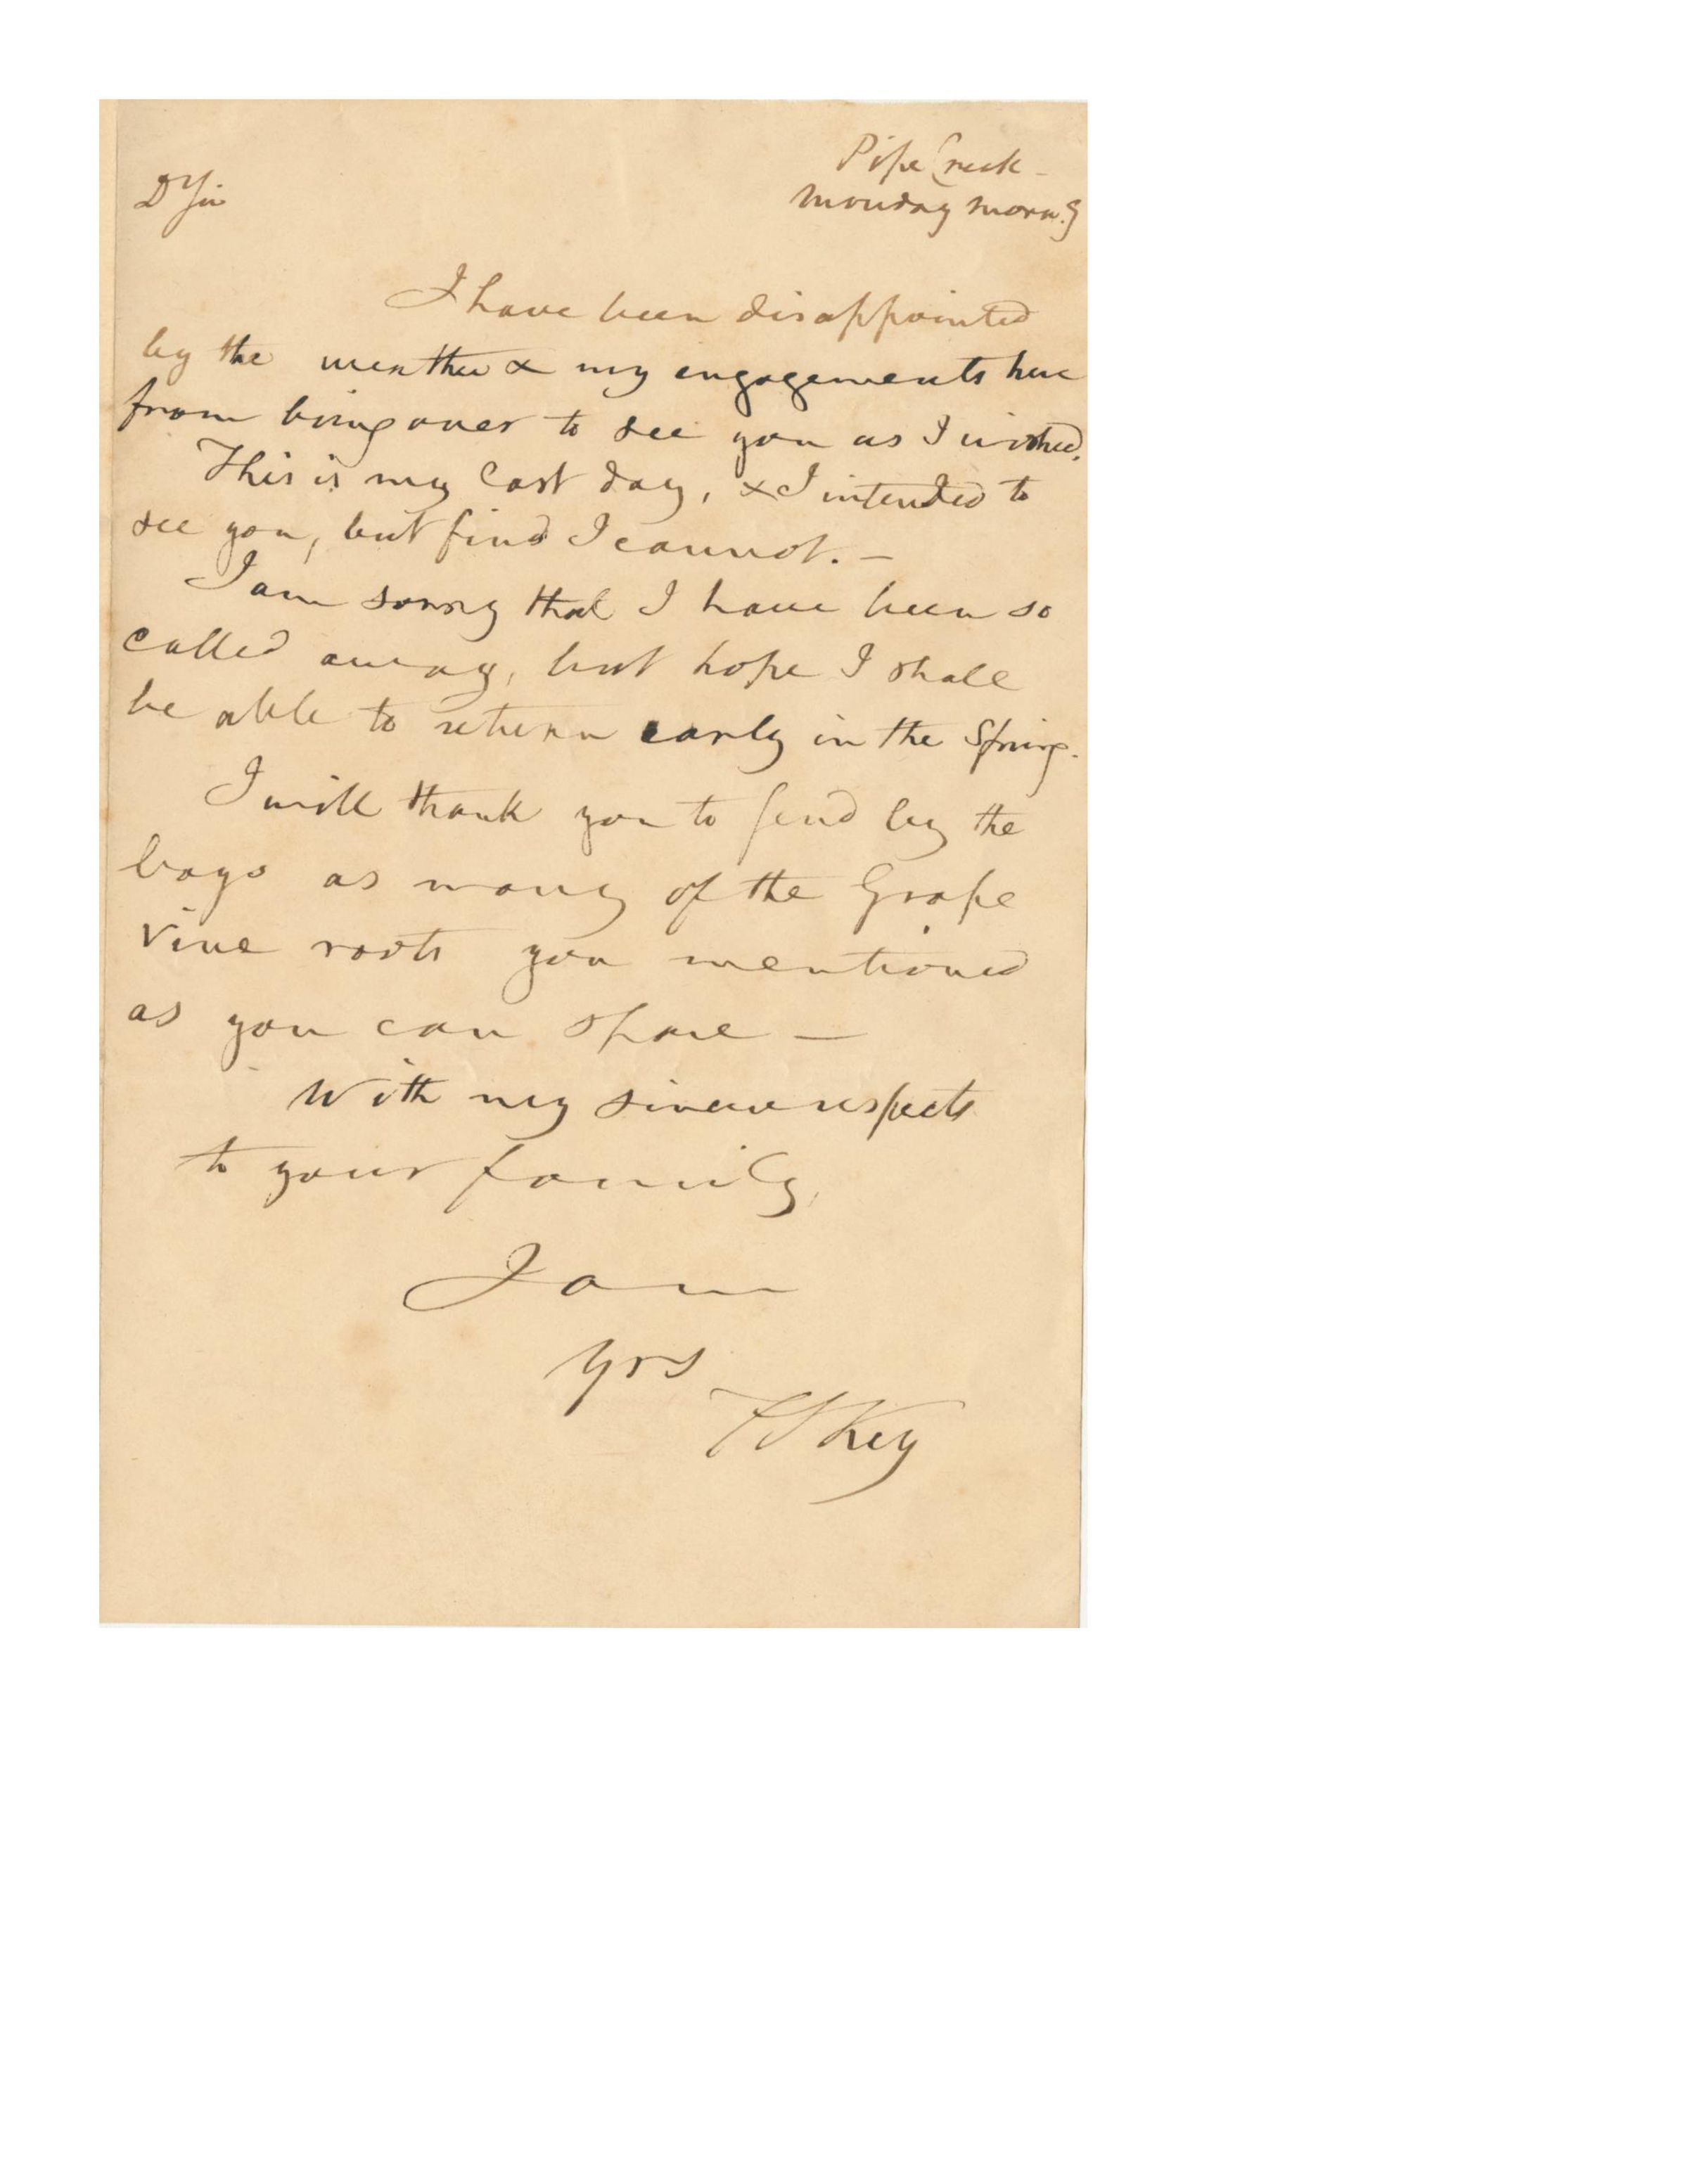 Pipe Creek -
Monday morn.g
D Sir
I have been disappointed
by the weather & my engagements here
from being over to see you as I wished.
This is my last day, & I intended to
see you, but find I cannot. —
I am sorry that I have been so
called away, but hope I shall
be able to return early in the Spring.
I will thank you to send by the
boys as many of the Grape
Vine roots you mentioned
as you can spare —
With my sincere respects
to your family,
I am
Yrs
F S Key